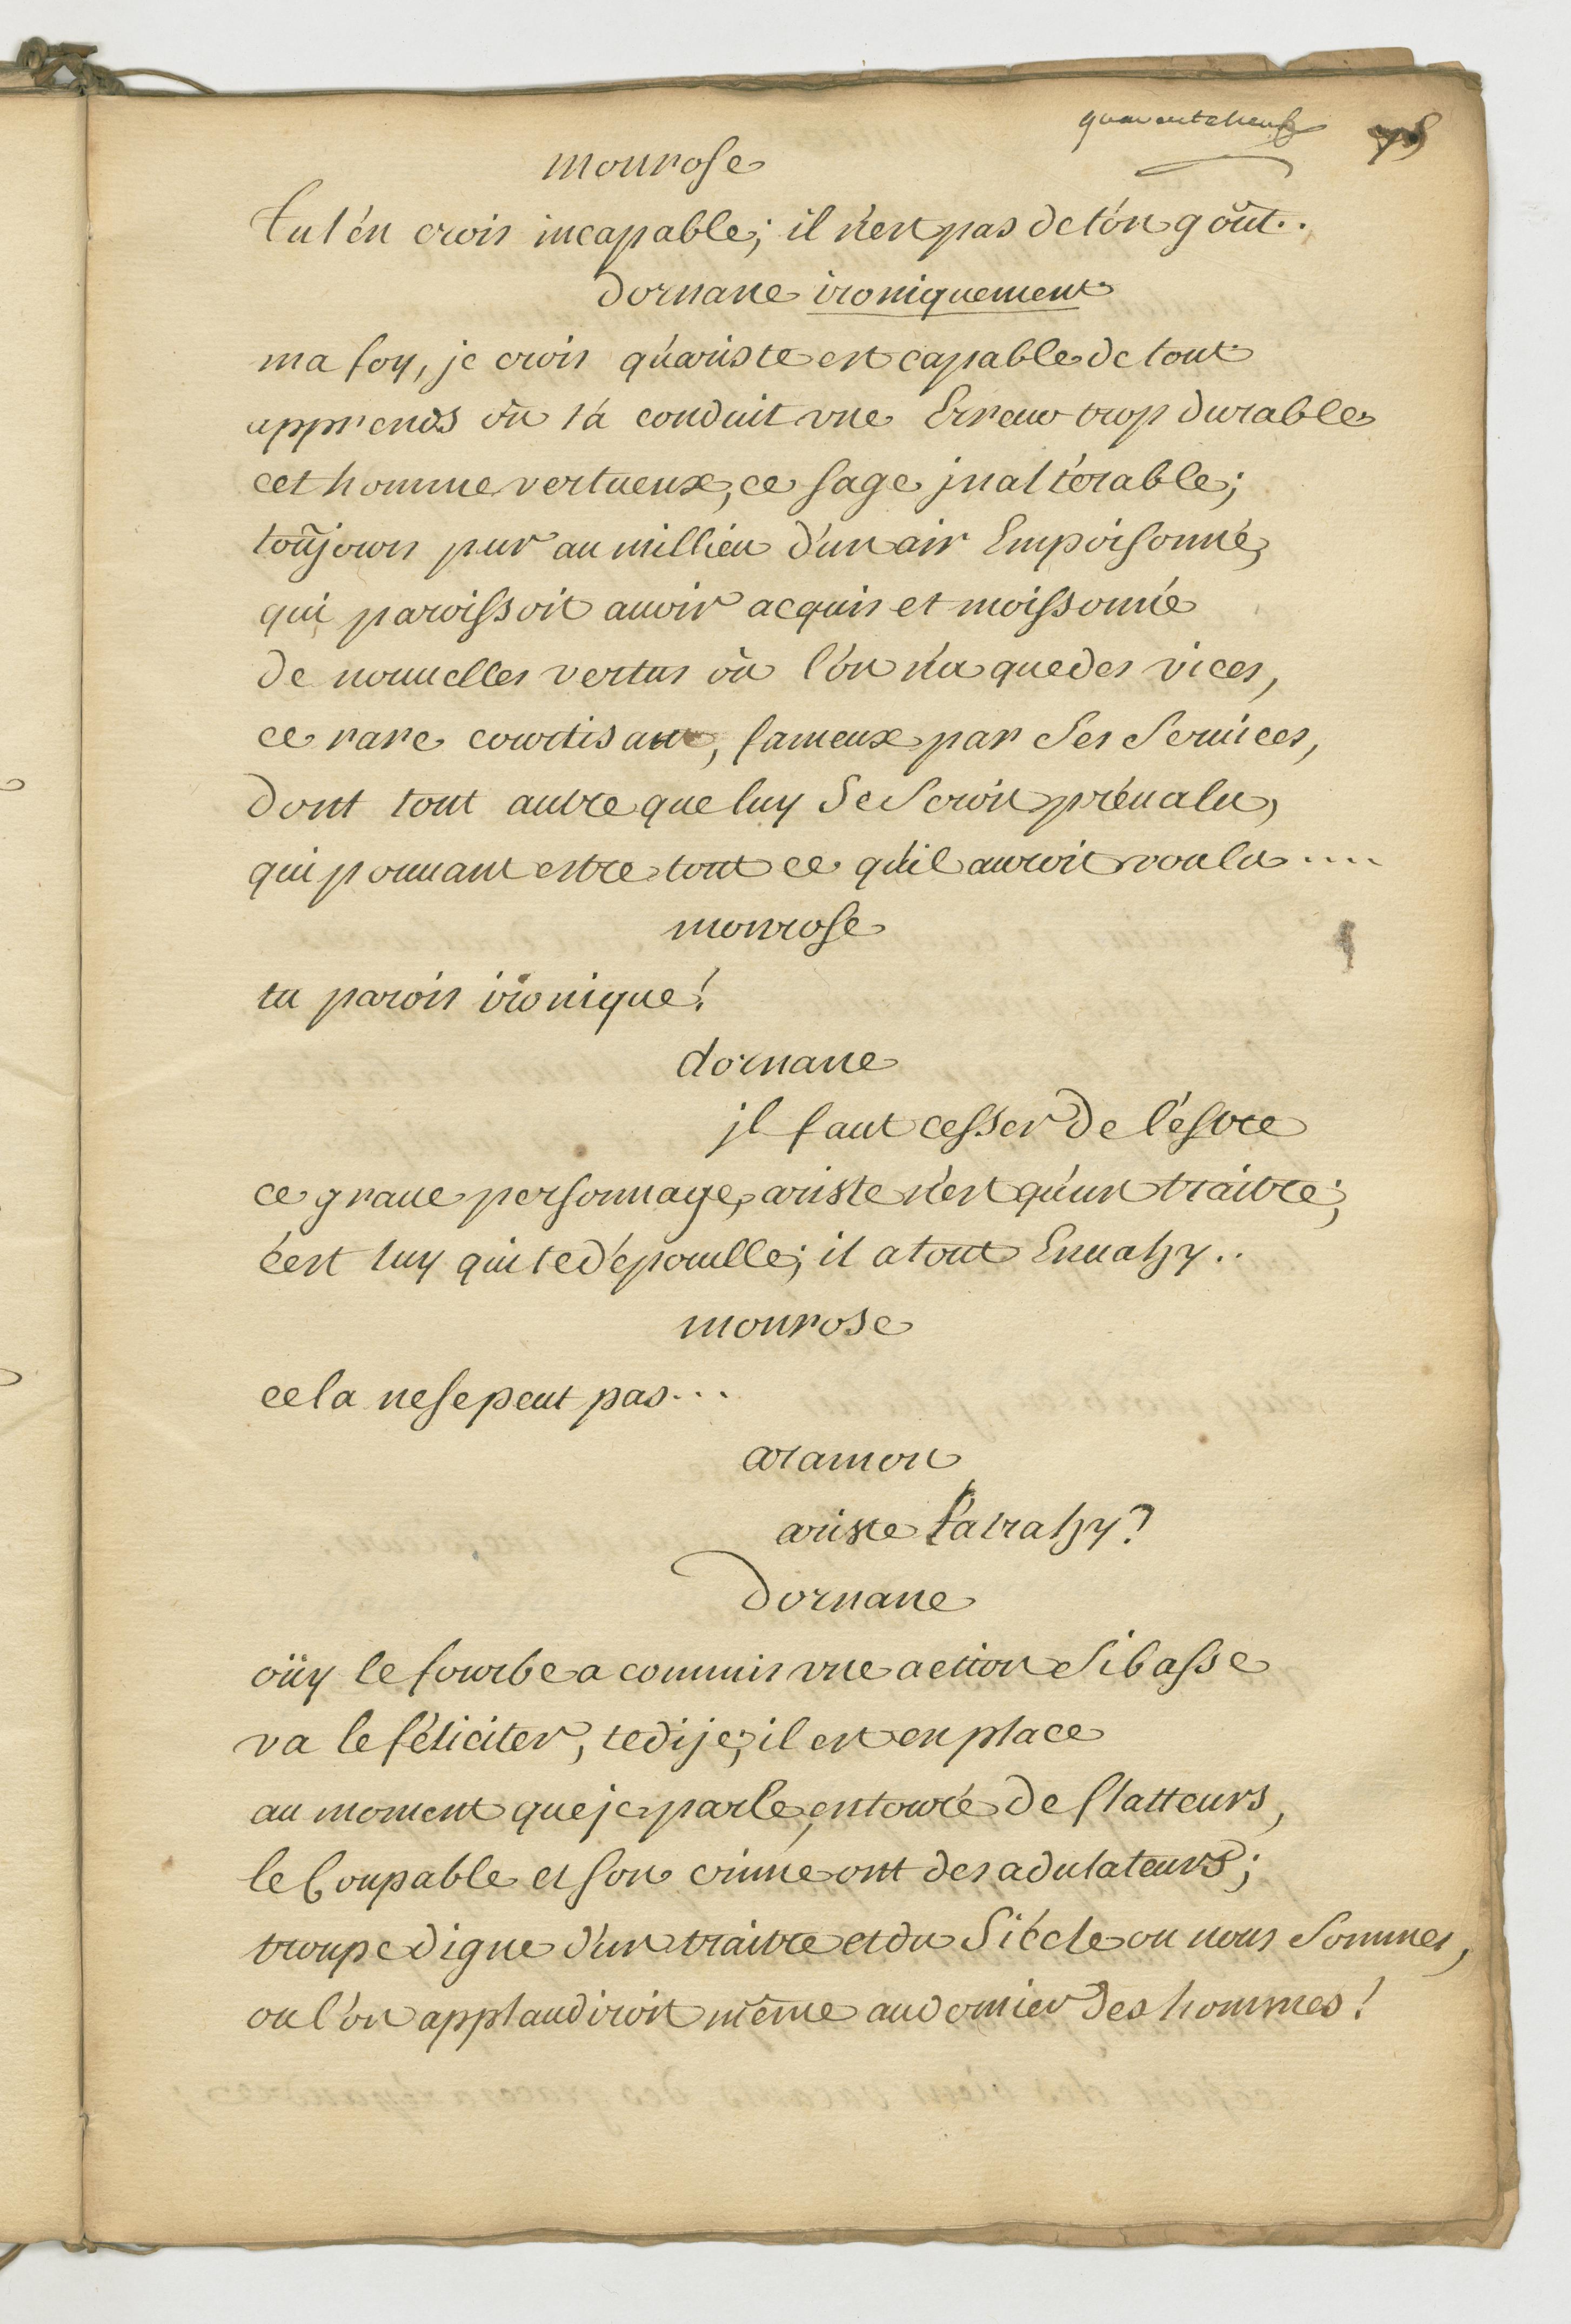 quarante neuf
monrose
tu l'en crois incapable; il n'est pas de ton goût..
dornane ironiquement
ma foy, je crois qu'ariste est capable de tout
apprends où t'a conduit vne Erreur trop durable
cet homme vertueux, ce sage jnaltérable;
toûjours pur au millieu d'un air Empoisonné,
qui paroissoit auoir acquis et moissonné
de nouuelles vertus où l'on n'a que des vices,
ce rare courtisan, fameux par ses seruices,
dont tout autre que luy se seroit préualu,
qui pouuant estre tout ce qu'il auroit voulu....
monrose
tu parois ironique!
dornane
jl faut cesser de l'éstre
ce graue personnage, ariste n'est qu'un traitre;
c'est luy qui te dépouille; il a tout Enuahy..
monrose
cela ne se peut pas...
aramon
ariste l'a trahy?
dornane
oüy le fourbe a commis vne action si basse
va le féliciter, te dije; il est en place
au moment que je parle, entouré de flatteurs,
le Coupable et son crime ont des adulateurs;
troupe digne d'un traitre et du Siécle ou nous sommes,
ou l'on applaudiroit même au dernier des hommes!